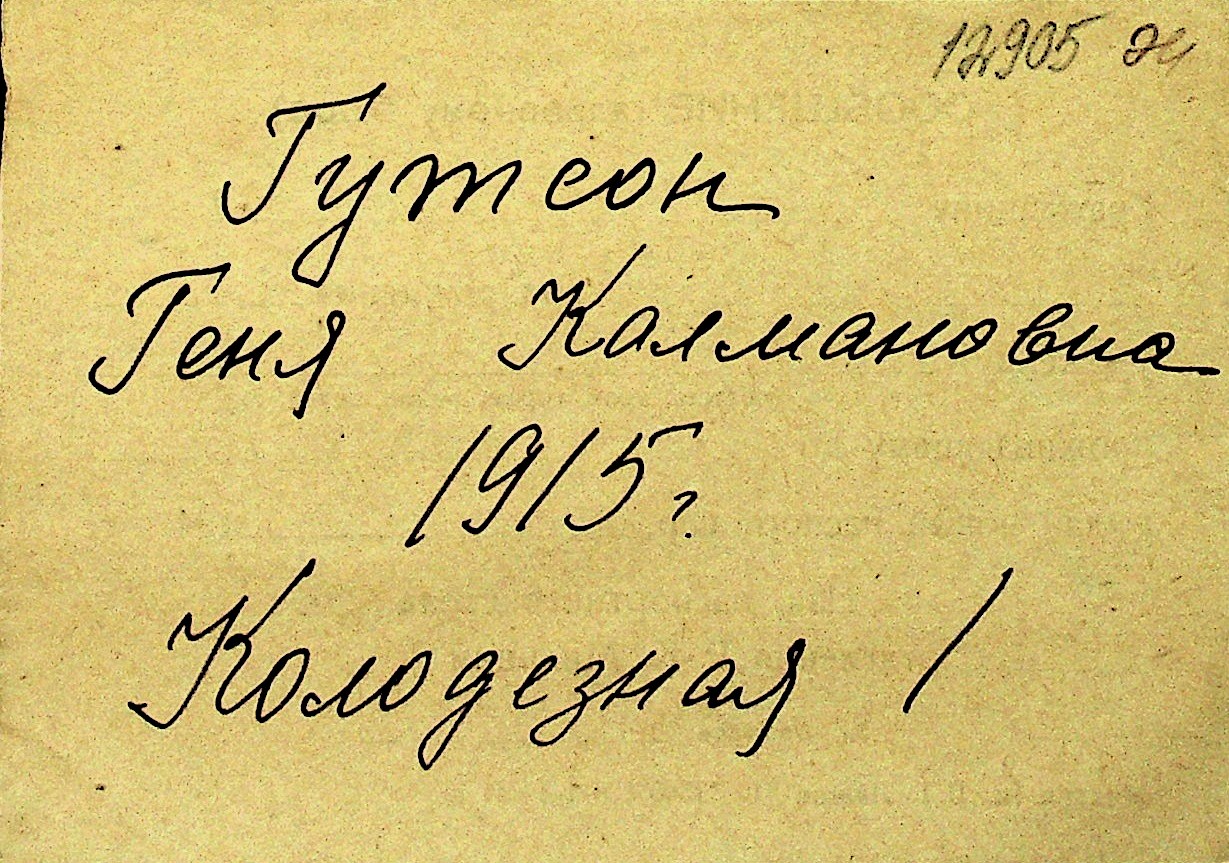 12905
Гутсон
Геня Калмановна
1915г.
Колодезная 1